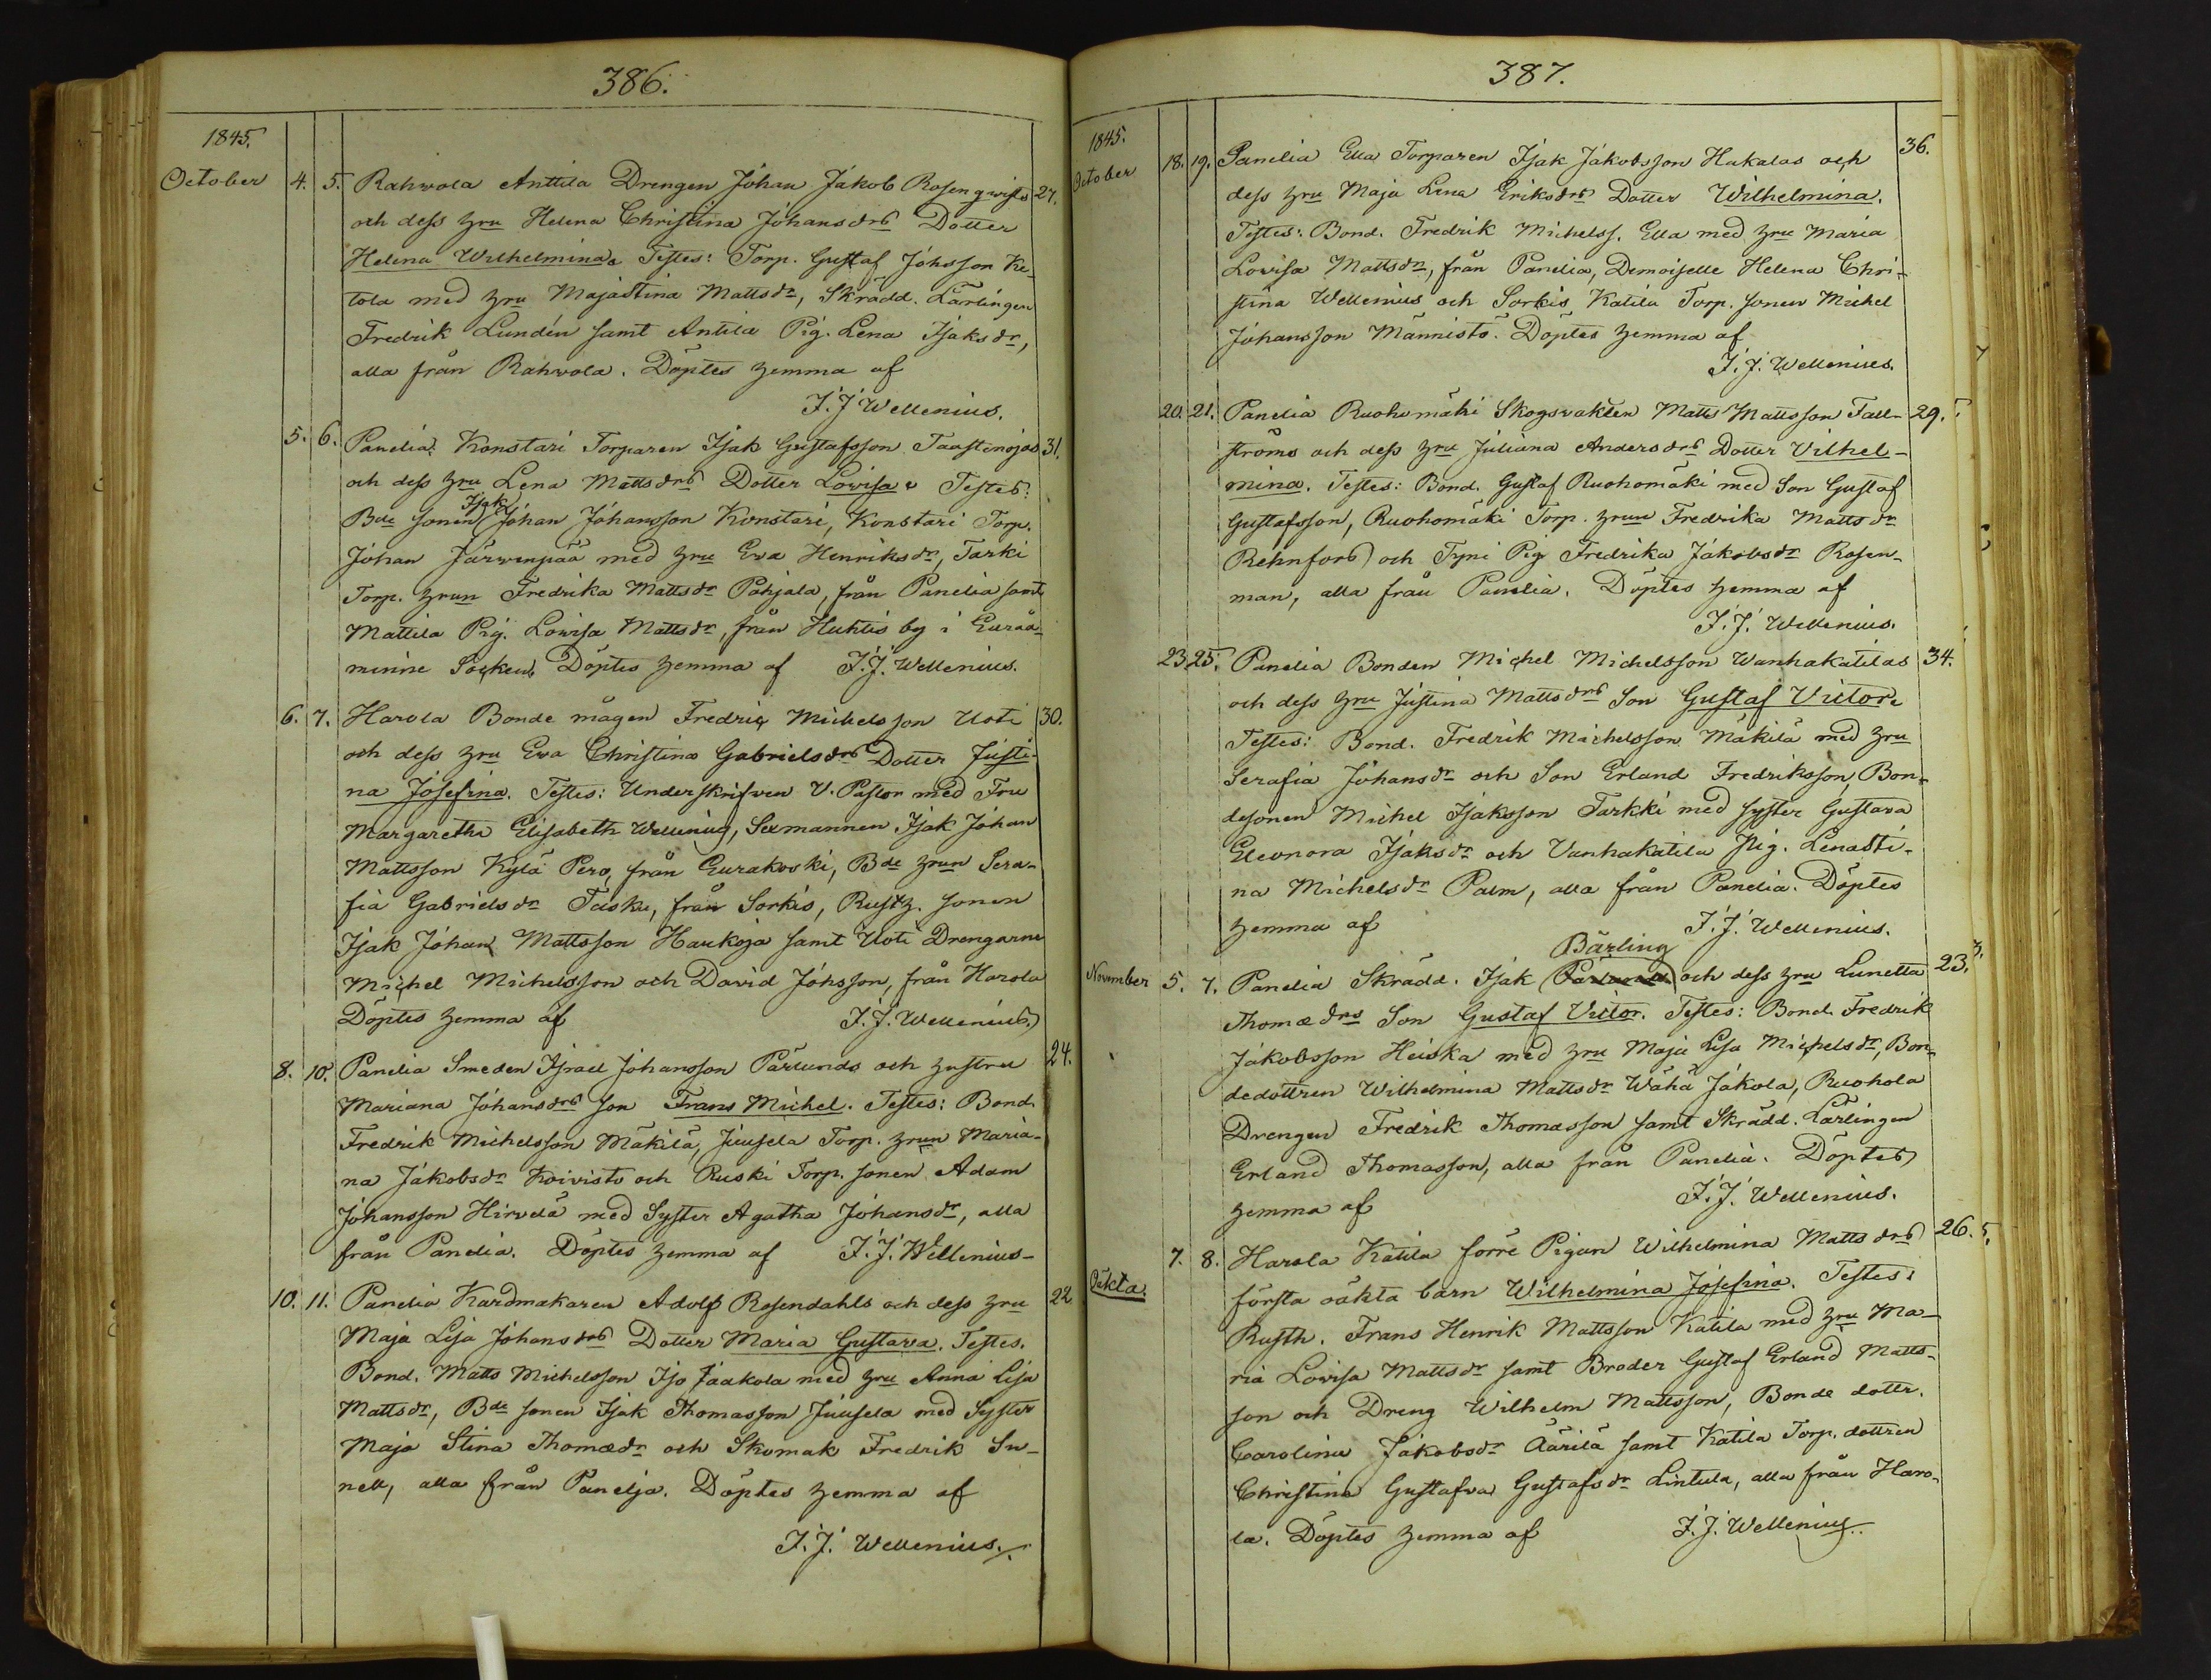 386.
1845.
October 4. 5. Rahwola Anttila Drengen Johan Jakob Rosenqwists 27.
och dess hru Helena Christina Johansdrs Dotter
Helena Wilhelmina. Testes: Torp. Gustaf Johsson Ke-
tola med hru Majastina Mattsdr, Skrädd. Lärlingen
Fredrik Lundén samt Antila Pig. Lena Isaksdr,
alla från Rahwola. Döptes hemma af
I. J. Wellenius.
5. 6. Panelia Konstari Torparen Isak Gustafsson Taastinojas 31.
och dess hru Lena Mattsdrs Dotter Lowisa. Testes:
Isak
Bde sonen Johan Johansson Konstari, Konstari Torp.
Johan Järwenpää med hru Ewa Henriksdr, Tarki
Torp. hrun Fredrika Mattsdr Pohjala, från Panelia samt
Mattila Pig. Lowisa Mattsdr, från Huhtis by i Euraå-
minne Socken. Döptes hemma af I. J. Wellenius.
6. 7. Harola Bonde mågen Fredric Michelsson Uoti 30.
och dess hru Ewa Christina Gabrielsdrs Dotter Justi-
na Josefina. Testes: Underskrifwen V. Pastor med Fru
Margaretha Elisabeth Wellenius, Sexmannen Isak Johan
Mattsson Kylä Pero, från Eurakoski, Bde hrun Sera-
fia Gabrielsdr Tasku, från Sorkis, Rusth. sonen
Isak Johan Mattsson Haukoja samt Uoti Drengarne
Michel Michelsson och David Johsson, från Harola
Döptes hemma af I. J. Wellenius.
8. 10. Panelia Smeden Israel Johansson Pärlunds och hustru 24.
Mariana Johansdrs Son Frans Michel. Testes: Bond.
Fredrik Michelsson Mäkilä, Juusela Torp. hrun Maria-
na Jakobsdr Koivisto och Ruski Torp. sonen Adam
Johansson Hirvelä med Syster Agatha Johansdr, alla
från Panelia. Döptes hemma af I. J. Wellenius.
10. 11. Panelia Kardmakaren Adolf Rosendahls och dess hru 22
Maja Lisa Johansdrs Dotter Maria Gustava. Testes.
Bond. Matts Michelsson Iso Jaakola med hru Anna Lisa
Mattsdr, Bde sonen Isak Thomasson Juusela med Syster
Maja Stina Thomædr och Skomak Fredrik Sn-
nell, alla från Panelja. Döptes hemma af
I. J. Wellenius.
387.
1845.
October 18. 19. Panelia Ella Torparen Isak Jakobsson Hakalas och 36.
dess hru Maja Lena Eriksdrs Dotter Wilhelmina.
Testes: Bond. Fredrik Michelss. Ella med hru Maria
Lovisa Mattsdr, från Panelia, Demoiselle Helena Chri-
stina Wellenius och Sorkis Katila Torp. sonen Michel
Johansson Männistö. Döptes hemma af
I. J. Wellenius.
20. 21. Panelia Ruohomäki Skogsvakten Matts Mattsson Fall- 29.
ströms och dess hru Juliana Andersdrs Dotter Vilhel-
mina. Testes: Bond. Gustaf Ruohomäki med Son Gustaf
Gustafsson, Ruohomäki Torp. hrun Fredrika Mattsdr
Rehnfors och Tyni Pig Fredrika Jakobsdr Rosen-
man, alla från Panelia. Döptes hemma af
I. J. Wellenius.
23. 25. Panelia Bonden Michel Michelsson Wanhakatilas 34.
och dess hru Justina Mattsdrs Son Gustaf Victor.
Testes: Bond. Fredrik Michelsson Mäkilä med hru
Serafia Johansdr och Son Erland Fredriksson, Bon-
desonen Michel Isaksson Tarkki med syster Gustava
Eleonora Isaksdr och Vanhakatila Pig. Lenasti-
na Michelsdr Palm, alla från Panelia. Döptes
hemma af I. J. Wellenius.
Bärling
November 5. 7. Panelia Skrädd. Isak Pärlund och dess hru Lunetta 23.
Thomædrs Son Gustaf Victor. Testes: Bond. Fredrik
Jakobsson Heiska med hru Maja Lisa Michelsdr, Bon-
dedottren Wilhelmina Mattsdr Wähä Jakola, Ruohola
Drengen Fredrik Thomasson samt Skrädd. Lärlingen
Erland Thomasson, alla från Panelia. Döptes
hemma af I. J. Wellenius.
7. 8. Harola Katila förre Pigan Wilhelmina Mattsdrs 26.
Oäkta. första oäkta barn Wilhelmina Josefina. Testes:
Rusth. Frans Henrik Mattsson Katila med hru Ma-
ria Lovisa Mattsdr samt Broder Gustaf Erland Matts-
son och Dreng Wilhelm Mattsson, Bonde dottr.
Carolina Jakobsdr Äärilä samt Katila Torp. dottren
Christina Gustafva Gustafsdr Lintula, alla från Haro-
la. Döptes hemma af I. J. Wellenius.